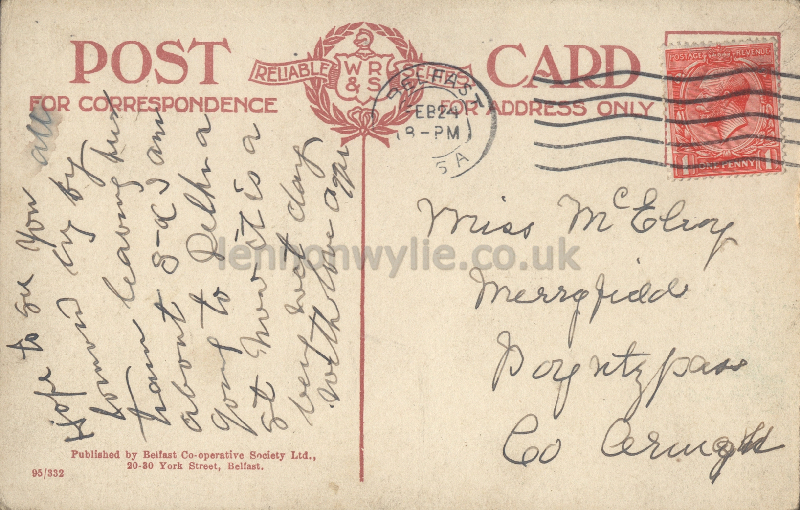 POST CARD
RELIABLE W R & S SERIES
FOR CORRESPONDENCE
FOR ADDRESS ONLY
BELFAST
FEB 24
8-PM
5A
POSTAGE REVENUE
1 ONE PENNY 1
Hope to see You all
tomorrow by
train leaving here
about 5-0 I am
going to Delhi a
at now it is a
very wet day
with love
Miss McElroy
Merryfield
Poyntzpass
Co Armagh
lennonwylie.co.uk
Published by Belfast Co-operative Society Ltd.,
20-30 York Street, Belfast.
95/332